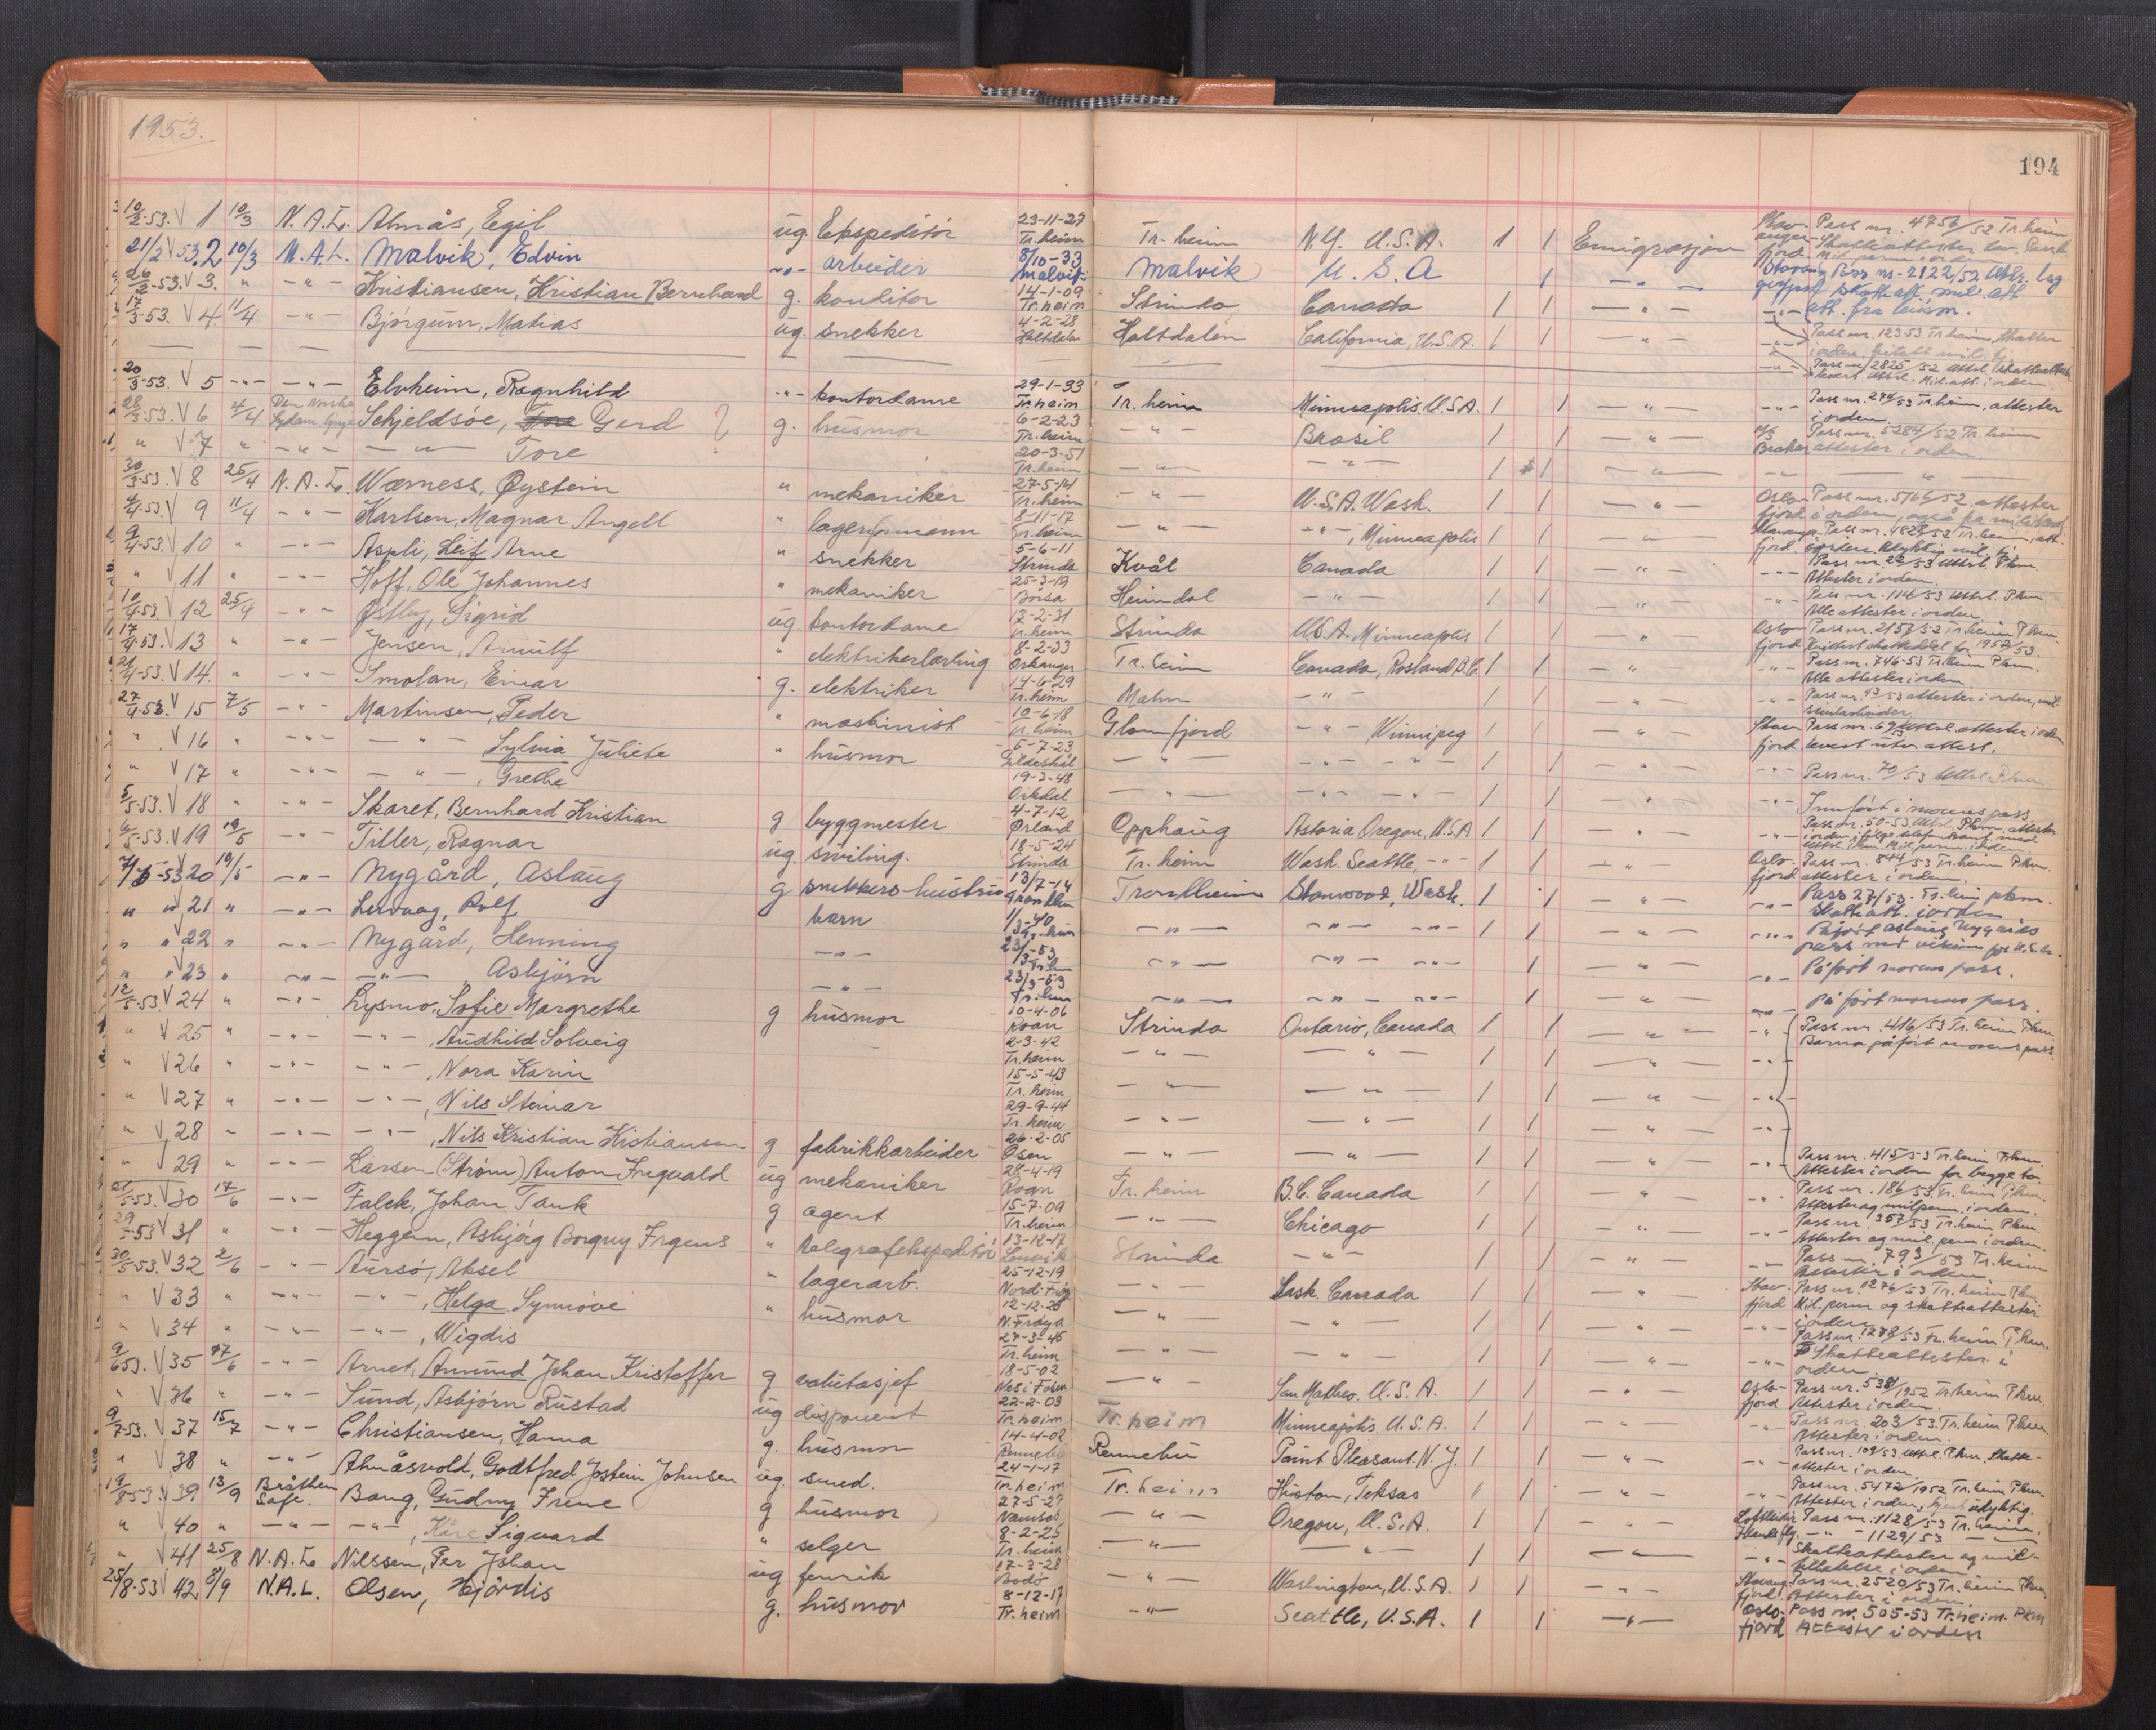 1953.
194
10/2-53. V 1 10/3 N.A.L. Almås, Egil ug. Ekspeditör 23-11-27 Tr.heim Tr.heim N.Y. U.S.A. 1 1 Emigrasjon Stavangerfjord Pass nr. 4756/52 Tr.heim
21/2 V 53. 2 10/3 N.A.L. Malvik, Edvin -"- arbeider 8/10-33 Malvik Malvik U.S.A 1 -"- Pass nr. 2122/52
26/2-53. V 3. " -"- Kristiansen, Kristian Bernhard g. konditor 14-1-09 Tr.heim Strinda Canada 1 1 -"-
17/3-53. V 4. 11/4 -"- Bjørgum, Matias ug. snekker 4-2-28 Haltdalen Haltdalen California, U.S.A. 1 1 -"- Pass nr. 123-53 Tr.heim
20/3-53. V 5 -"- -"- Elvheim, Ragnhild -"- kontordame 29-1-33 Tr.heim Tr.heim Minneapolis, U.S.A. 1 1 -"- Pass nr. 274/53 Tr.heim, attester i orden
28/3-53. V 6 4/4 Den Norske Schjeldsöe, Gerd ? g. husmor 6-2-23 Tr.heim -"- Brasil 1 1 -"- Pass nr. 5284/52 Tr.heim attester i orden
" V 7 " -"- -"- Tore 20-3-51 Tr.heim -"- -"- 1 1 -"-
30/3-53. V 8 25/4 N.A.L. Wærness, Øystein " mekaniker 27-5-14 Tr.heim -"- U.S.A. Wash. 1 1 -"- Oslofjord Pass nr. 5166/52 attester i orden
4/4-53. V 9 11/4 -"- Karlsen, Magnar Angell " lagerformann 8-11-17 Tr.heim -"- -"-, Minneapolis 1 1 -"- Pass nr. 4828/52 Tr.heim
9/4-53. V 10 " -"- Aspli, Leif Arne " snekker 5-6-11 Strinda Kvål Canada 1 1 -"- Pass nr. 22/53 Attester i orden.
" V 11 " -"- Hoff, Ole Johannes " mekaniker 25-3-19 Börsa Heimdal -"- 1 1 -"- Pass nr. 114/53 Alle attester i orden
10/4-53. V 12 25/4 -"- Østby, Sigrid ug kontordame 12-2-31 Tr.heim Strinda U.S.A. Minneapolis 1 1 -"- Oslofjord Pass nr. 2157/52 Tr.heim Pkm.
17/4-53. V 13 " -"- Jensen, Arnulf " elektrikerlærling 8-2-33 Orkanger Tr.heim Canada, Rosland B.C. 1 1 -"- Pass nr. 746-53 Tr.heim Pkm. Alle attester i orden
21/4-53. V 14. " -"- Smolan, Einar g. elektriker 14-6-29 Tr.heim Malm -"- 1 1 -"- Pass nr. 43/53 attester i orden, mil.
27/4-53. V 15 7/5 -"- Martinsen, Peder " maskinist 10-6-18 Tr.heim Glomfjord -"- Winnipeg 1 1 -"- Pass nr. 69/53 attester i orden
" V 16 " -"- -"- Sylvia Juliete " husmor 6-7-23 Gildeskål -"- -"- -"- 1 1 -"- Pass nr. 70/53
" V 17 " -"- -"-, Grethe 19-3-48 Orkdal -"- -"- -"- 1 1 -"- Innført i morens pass
5/5-53. V 18 " -"- Skaret, Bernhard Kristian g byggmester 4-7-12 Ørland Opphaug Astoria Oregon, U.S.A 1 1 -"- Pass nr. 50-53
6/5-53. V 19 19/5 -"- Tiller, Ragnar ug. siviling. 18-5-24 Strinda Tr.heim Wash. Seattle, -"- 1 1 -"- Oslofjord Pass nr. 844/53 Tr.heim Pkm. attester i orden.
7/5-53 20 19/5 -"- Nygård, Aslaug g snekkers-hustru 13/7-14 Trondheim Stanwood, Wash. 1 1 -"- Pass 27/53. Tr.heim pkm. Skatteatt. i orden
" " 21 " -"- Lervaag, Rolf barn 1/3-40 Tr.heim -"- -"- -"- 1 1 -"- Påført Aslaug Nygårds pass med visum for U.S.A.
" " 22 " -"- Nygård, Henning -"- 23/3-53 Tr.heim -"- -"- -"- 1 -"- Påført morens pass.
" " 23 " -"- -"- Asbjörn -"- 23/3-53 Tr.heim -"- -"- -"- 1 -"- Påført morens pass.
12/5-53. V 24 " -"- Lysmo, Sofie Margrethe g husmor 10-4-06 Roan Strinda Ontario, Canada 1 1 -"- Pass nr. 416/53 Tr.heim Pkm. Barna påført morens pass.
" V 25 " -"- -"-, Audhild Solveig 2-3-42 Tr.heim -"- -"- 1 1 -"-
" V 26 " -"- -"-, Nora Karin 15-5-43 Tr.heim -"- -"- 1 1 -"-
" V 27 " -"- -"-, Nils Steinar 29-9-44 Tr.heim -"- -"- 1 1 -"-
" V 28 " -"- -"-, Nils Kristian Kistiansen g fabrikkarbeider 26-2-05 Osen -"- -"- 1 1 -"- Pass nr. 415/53 Tr.heim Pkm Attester i orden for begge to.
" V 29 " -"- Larsen (Strøm) Anton Ingvald ug mekaniker 28-4-19 Roan Tr.heim B.C. Canada 1 1 -"- Pass nr. 186/53 Tr.heim Pkm. Attester og milperm. i orden.
21/5-53. V 30 17/6 -"- Falck, Johan Tank g agent 15-7-09 Tr.heim -"- Chicago 1 1 -"- Pass nr. 357/53 Tr.heim Pkm. Attester og mil. perm i orden.
29/5-53 V 31 " -"- Heggem, Asbjörg Borguy Irgens " telegrafekspeditör 13-12-17 Strinda -"- 1 1 -"- Pass nr. 793/53 Tr.heim Attester i orden
30/5-53. V 32 2/6 -"- Aursö, Aksel " lagerarb. 25-12-19 -"- Sask. Canada 1 1 -"- Stav-fjord Pass nr. 1276/53 Tr.heim Pkm Mil.perm og skatteattester i orden
" V 33 " -"- -"-, Helga Synnöve " husmor 12-12-20 N.Frøya -"- -"- 1 1 -"- Pass nr. 1278/53 Tr.heim Pkm. Skatteattester i orden
" V 34 " -"- -"-, Wigdis 27-3-45 Tr.heim -"- -"- 1 1 -"-
9/6 53. V 35 17/6 -"- Arnet, Amund Johan Kristoffer g valutasjef 18-5-02 -"- San Matheo, U.S.A. 1 1 -"- Oslofjord Pass nr. 5381/1952 Tr.heim Pkm. Attester i orden.
" V 36 " -"- Sund, Asbjørn Rustad ug disponent 22-2-03 Tr.heim Tr.heim Minneapolis U.S.A. 1 1 -"- Pass nr. 203/53. Tr.heim Pkm. Attester i orden.
9/7-53. V 37 15/7 -"- Christiansen, Hanna g. husmor 14-4-02 Rennebu Rennebu Point Pleasant. N.Y. 1 1 -"- Pass nr. 109/53 Skatteattester i orden.
" V 38 " -"- Almåsvold, Godtfred Jostein Johnsen ug. smed. 24-1-17 Tr.heim Tr.heim Huston, Teksas 1 1 -"- Pass nr. 5472/1952 Tr.heim Pkm. Attester i orden, kjent udyktig.
19/8-53 V 39 13/9 Bråthen Safe. Bang, Gudny Irene g husmor 27-5-27 Namsos -"- Oregon, U.S.A. 1 1 -"- Pass nr. 1128/53 Tr.heim.
" V 40 " -"- -"-, Kåre Sigvard " selger 8-2-25 Tr.heim -"- -"- 1 1 -"- 1129/53 Skatteattester og mil-tillatelse i orden
" V 41 25/8 N.A.L Nilssen, Per Johan ug fenrik 17-3-28 Bodö -"- Washington, U.S.A. 1 1 -"- Stavangfjord Pass nr. 2520/53 Tr.heim Pkm. Attester i orden.
25/8-53 V 42 8/9 N.A.L. Olsen, Hjørdis g. husmor 8-12-17 Tr.heim -"- Seattle, U.S.A. 1 1 -"- Oslofjord Pass nr. 505-53 Tr.heim. Pkm Attester i orden